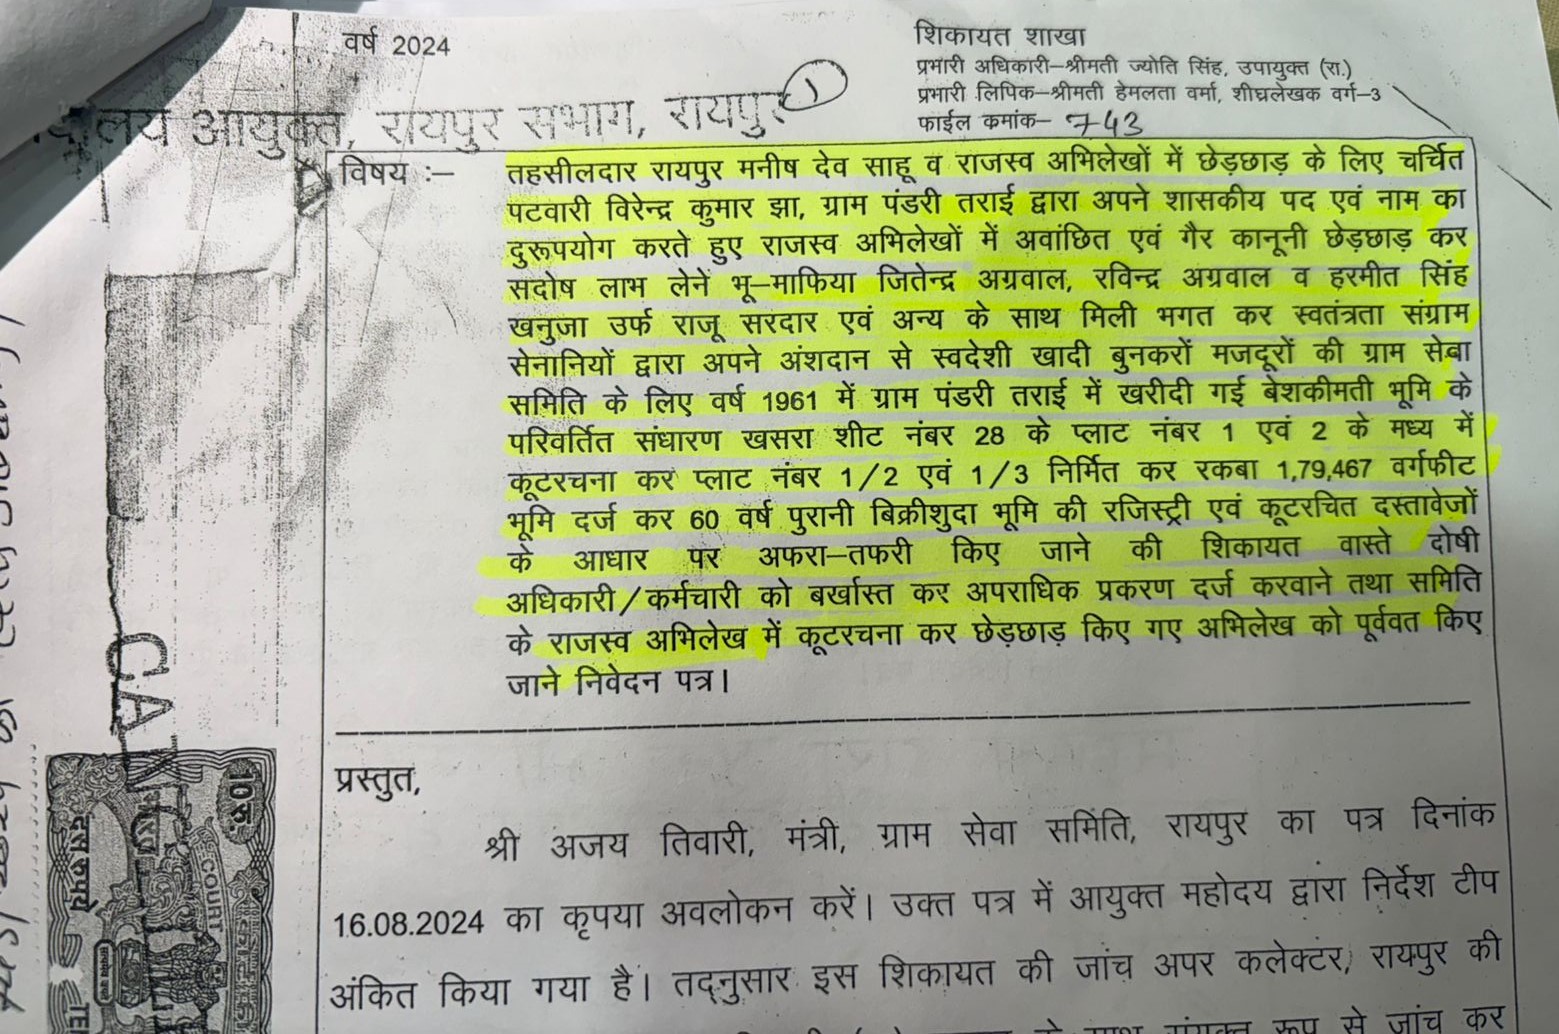 वर्ष 2024
शिकायत शाखा
प्रभारी अधिकारी–श्रीमती ज्योति सिंह, उपायुक्त (रा.)
प्रभारी लिपिक–श्रीमती हेमलता वर्मा, शीघ्रलेखक वर्ग–3
फाईल कमांक– 743
आयुक्त, रायपुर सभाग, रायपुर 1
विषय :– तहसीलदार रायपुर मनीष देव साहू व राजस्व अभिलेखों में छेड़छाड़ के लिए चर्चित
पटवारी विरेन्द्र कुमार झा, ग्राम पंडरी तराई द्वारा अपने शासकीय पद एवं नाम का
दुरूपयोग करते हुए राजस्व अभिलेखों में अवांछित एवं गैर कानूनी छेड़छाड़ कर
सदोष लाभ लेने भू–माफिया जितेन्द्र अग्रवाल, रविन्द्र अग्रवाल व हरमीत सिंह
खनुजा उर्फ राजू सरदार एवं अन्य के साथ मिली भगत कर स्वतंत्रता संग्राम
सेनानियों द्वारा अपने अंशदान से स्वदेशी खादी बुनकरों मजदूरों की ग्राम सेवा
समिति के लिए वर्ष 1961 में ग्राम पंडरी तराई में खरीदी गई बेशकीमती भूमि के
परिवर्तित संधारण खसरा शीट नंबर 28 के प्लाट नंबर 1 एवं 2 के मध्य में
कूटरचना कर प्लाट नंबर 1/2 एवं 1/3 निर्मित कर रकबा 1,79,467 वर्गफीट
भूमि दर्ज कर 60 वर्ष पुरानी बिक्रीशुदा भूमि की रजिस्ट्री एवं कूटरचित दस्तावेजों
के आधार पर अफरा–तफरी किए जाने की शिकायत वास्ते दोषी
अधिकारी/कर्मचारी को बर्खास्त कर अपराधिक प्रकरण दर्ज करवाने तथा समिति
के राजस्व अभिलेख में कूटरचना कर छेड़छाड़ किए गए अभिलेख को पूर्ववत किए
जाने निवेदन पत्र।
प्रस्तुत,
श्री अजय तिवारी, मंत्री, ग्राम सेवा समिति, रायपुर का पत्र दिनांक
16.08.2024 का कृपया अवलोकन करें। उक्त पत्र में आयुक्त महोदय द्वारा निर्देश टीप
अंकित किया गया है। तद्नुसार इस शिकायत की जांच अपर कलेक्टर, रायपुर की
रूप से जांच कर
10रु.
दस रुपये
COURT